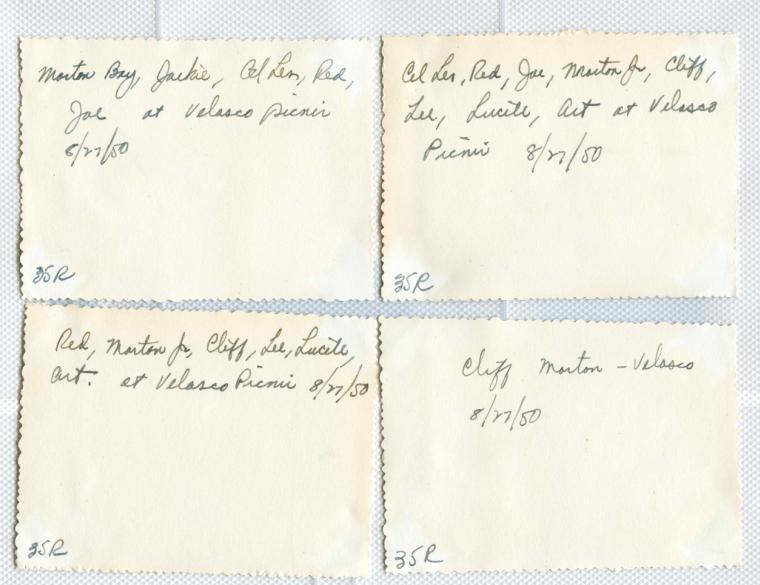 Morton Boy, Jackie, Cel Len, Red,
Joe at Velasco picnic
8/27/50
35R
Cel Len, Red, Joe, Morton Jr, Cliff,
Lee, Lucile, Art at Velasco
Picnic 8/27/50
35R
Red, Morton Jr, Cliff, Lee, Lucile,
Art. at Velasco Picnic 8/27/50
35R
Cliff Morton - Velasco
8/27/50
35R